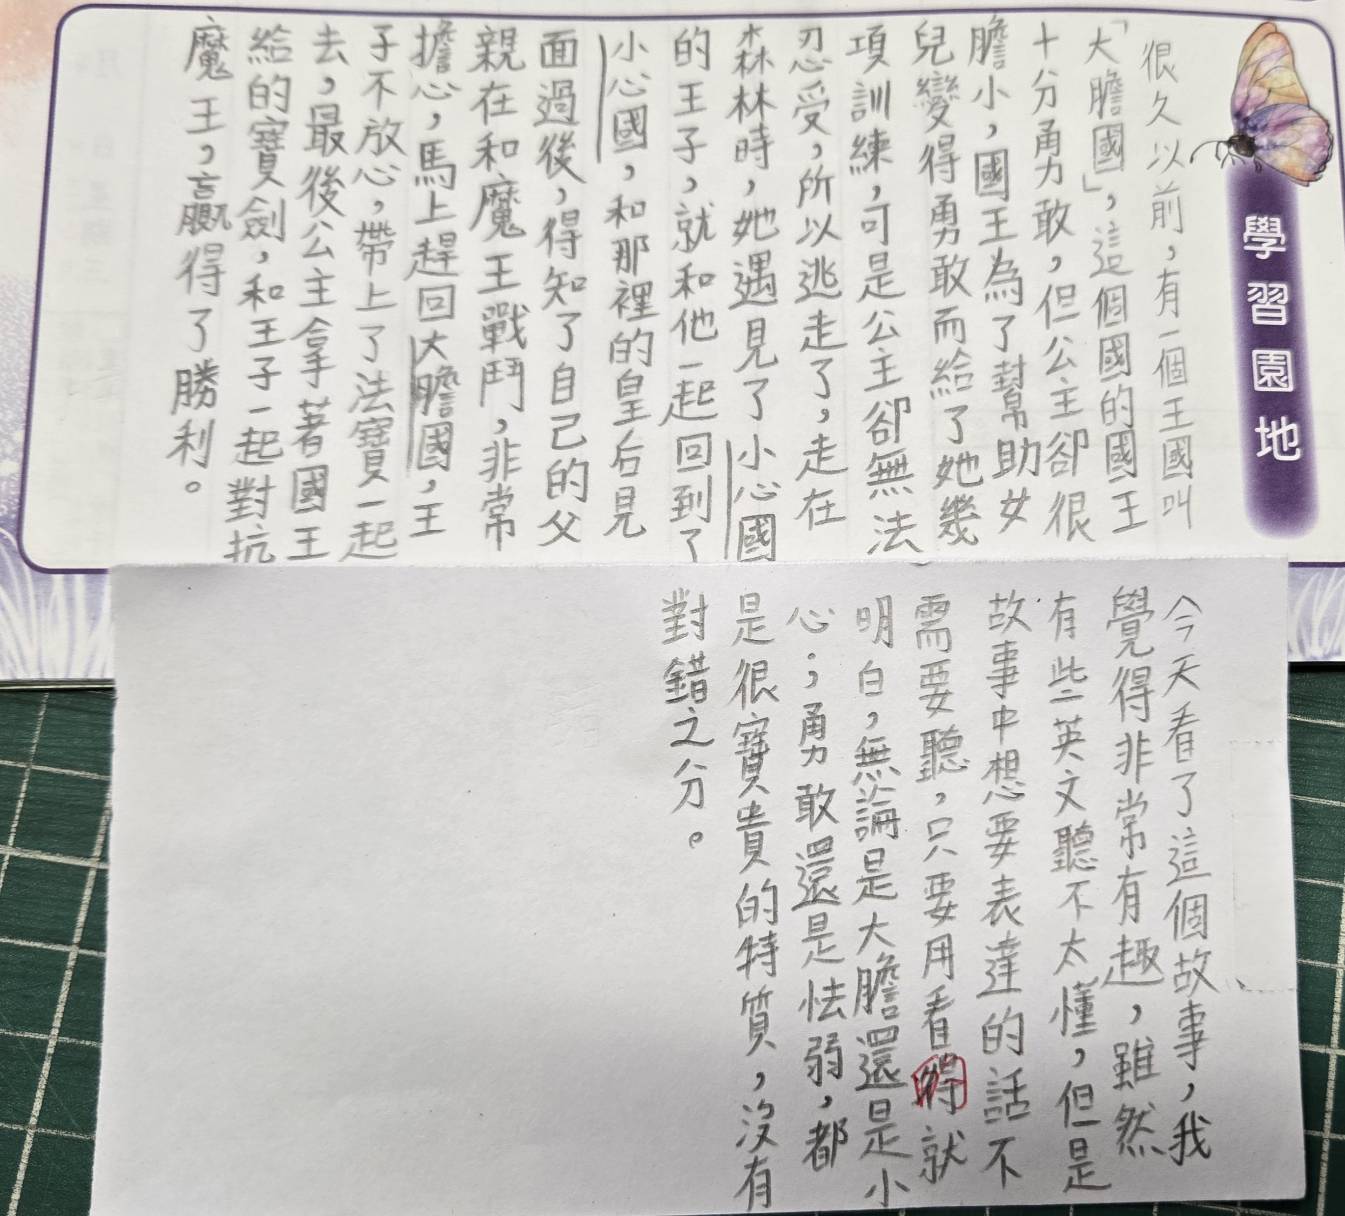 學習園地
很久以前，有一個王國叫
「大膽國」，這個國的國王
十分勇敢，但公主卻很
膽小，國王為了幫助女
兒變得勇敢而給了她幾
項訓練，可是公主卻無法
忍受，所以逃走了，走在
森林時，她遇見了小心國
的王子，就和他一起回到了
小心國，和那裡的皇后見
面過後，得知了自己的父
親在和魔王戰鬥，非常
擔心，馬上趕回大膽國，王
子不放心，帶上了法寶一起
去，最後公主拿著國王
給的寶劍，和王子一起對抗
魔王，贏得了勝利。
今天看了這個故事，我
覺得非常有趣，雖然
有些英文聽不太懂，但是
故事中想要表達的話不
需要聽，只要用看得就
明白，無論是大膽還是小
心；勇敢還是怯弱，都
是很寶貴的特質，沒有
對錯之分。